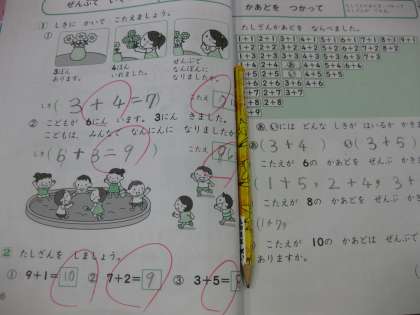 ぜんぶで
1 しきに かいて こたえましょう。
①
3ぼん
あります。
4ほん
いれました。
ぜんぶで
なんぼんに
なりましたか。
しき( 3+4=7)
こたえ
② こどもが 6にん います。3にん きました。
こどもは、みんなで なんにんに なりましたか
しき( 6+3=9)
こたえ
2 たしざんを しましょう。
① 9+1=10 ② 7+2=9 ③ 3+5=
かあどを つかって
たしざんかあどを ならべました。
1+1 2+1 3+1 4+1 5+1 6+1 7+1 8+1 9+1
1+2 2+2 3+2 4+2 5+2 6+2 7+2 8+2
+4 2+4 あ 4+4 5+4 6+4
+5 2+5 い 4+5 5+5
+6 2+6 3+6 4+6
+7 2+7 3+7
+8 2+8
+9
あ、いには どんな しきが はいるか かき
あ(3+4) い(3+5)
こたえが 6の かあどを ぜんぶ かき
(1+5, 2+4, 3+
こたえが 8の かあどを ぜんぶ かき
(1+7,
こたえが 10の かあどは ぜんぶで
ありますか。